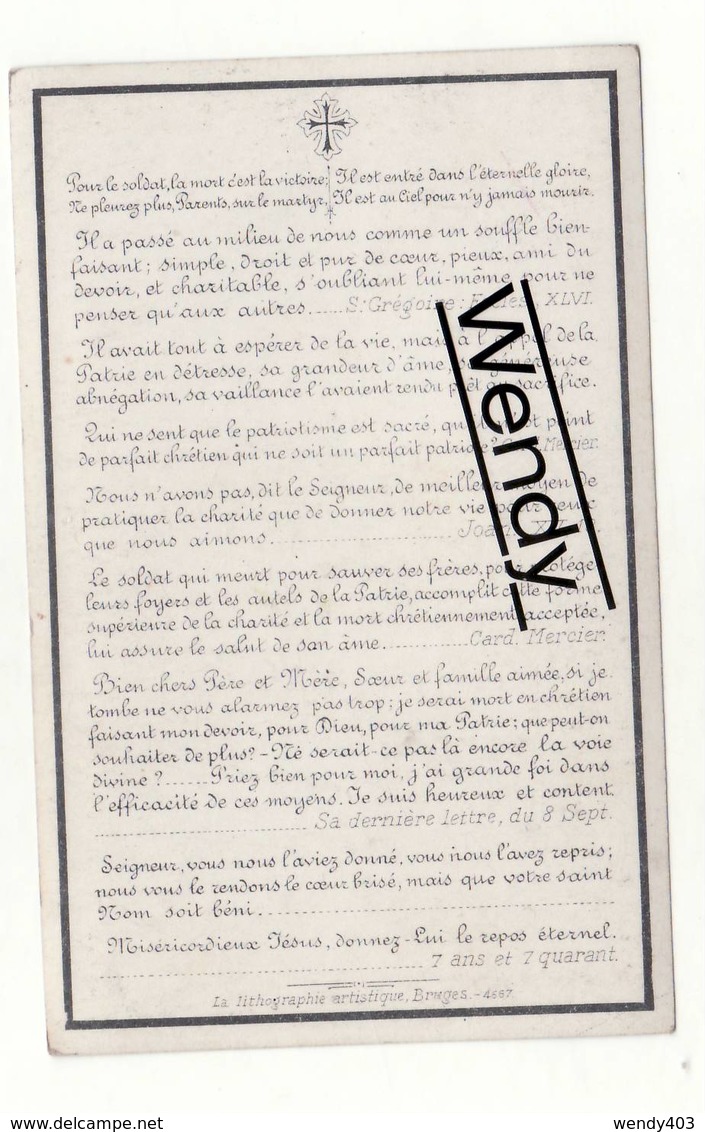 Pour le soldat, la mort c'est la victoire;
Ne pleurez plus, Parents, sur le martyr,
Il est entré dans l'éternelle gloire,
Il est au Ciel pour n'y jamais mourir.
Il a passé au milieu de nous comme un souffle bien-
faisant; simple, droit et pur de cœur, pieux, ami du
devoir, et charitable, s'oubliant lui-même pour ne
penser qu'aux autres. S.t Grégoire: XLVI.
Il avait tout à espérer de la vie, mais à l' de la
Patrie en détresse, sa grandeur d'âme,
abnégation, sa vaillance l'avaient rendu sacrifice.
Qui ne sent que le patriotisme est sacré, point
de parfait chrétien qui ne soit un parfait Mercier.
Nous n'avons pas, dit le Seigneur, de meilleur moyen de
pratiquer la charité que de donner notre vie pour ceux
que nous aimons.
Le soldat qui meurt pour sauver ses frères, pour
leurs foyers et les autels de la Patrie, accomplit cette forme
supérieure de la charité et la mort chrétiennement acceptée,
lui assure le salut de son âme. Card. Mercier.
Bien chers Père et Mère, Sœur et famille aimée, si je
tombe ne vous alarmez pas trop; je serai mort en chrétien
faisant mon devoir, pour Dieu, pour ma Patrie; que peut-on
souhaiter de plus? - Ne serait-ce pas là encore la voie
divine? Priez bien pour moi, j'ai grande foi dans
l'efficacité de ces moyens. Je suis heureux et content.
Sa dernière lettre, du 8 Sept.
Seigneur, vous nous l'aviez donné, vous nous l'avez repris;
nous vous le rendons le cœur brisé, mais que votre saint
Nom soit béni.
Miséricordieux Jésus, donnez-Lui le repos éternel.
7 ans et 7 quarant.
La lithographie artistique, Bruges. - 4667
Wendy
www.delcampe.net
wendy403